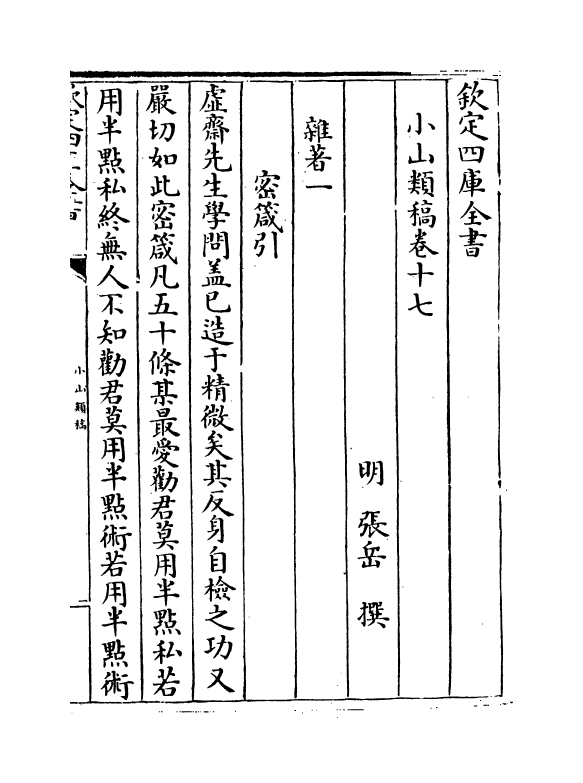 欽定四庫全書
小山類稿卷十七
明　張岳　撰
雜著一
密箴引
虛齋先生學問蓋已造于精微矣其反身自檢之功又
嚴切如此密箴凡五十條某最愛勸君莫用半點私若
用半點私終無人不知勸君莫用半點術若用半點術
欽定四庫全書
小山類稿